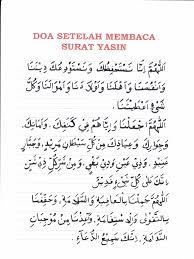 DOA SETELAH MEMBACA
SURAT YASIN
اَللّٰهُمَّ اِنَّا نَسْتَحْفِظُكَ وَنَسْتَوْدِعُكَ دِيْنَنَا
وَاَنْفُسَنَا وَاَهْلَنَا وَاَوْلَادَنَا وَاَمْوَالَنَا وَكُلَّ
شَيْءٍ اَعْطَيْتَنَا
اَللّٰهُمَّ اجْعَلْنَا وَاِيَّاهُمْ فِيْ كَنَفِكَ وَاَمَانِكَ
وَجِوَارِكَ وَعِيَاذِكَ مِنْ كُلِّ شَيْطَانٍ مَّرِيْدٍ وَجَبَّارٍ
عَنِيْدٍ وَذِيْ عَيْنٍ وَذِيْ بَغْيٍ وَمِنْ شَرِّ كُلِّ ذِيْ شَرٍّ
اِنَّكَ عَلٰى كُلِّ شَيْءٍ قَدِيْرٌ
اَللّٰهُمَّ جَمِّلْنَا بِالْعَافِيَةِ وَالسَّلَامَةِ وَحَقِّقْنَا
بِالتَّقْوٰى وَالْاِسْتِقَامَةِ وَاَعِذْنَا مِنْ مُوْجِبَاتِ
النَّدَامَةِ اِنَّكَ سَمِيْعُ الدُّعَاءِ